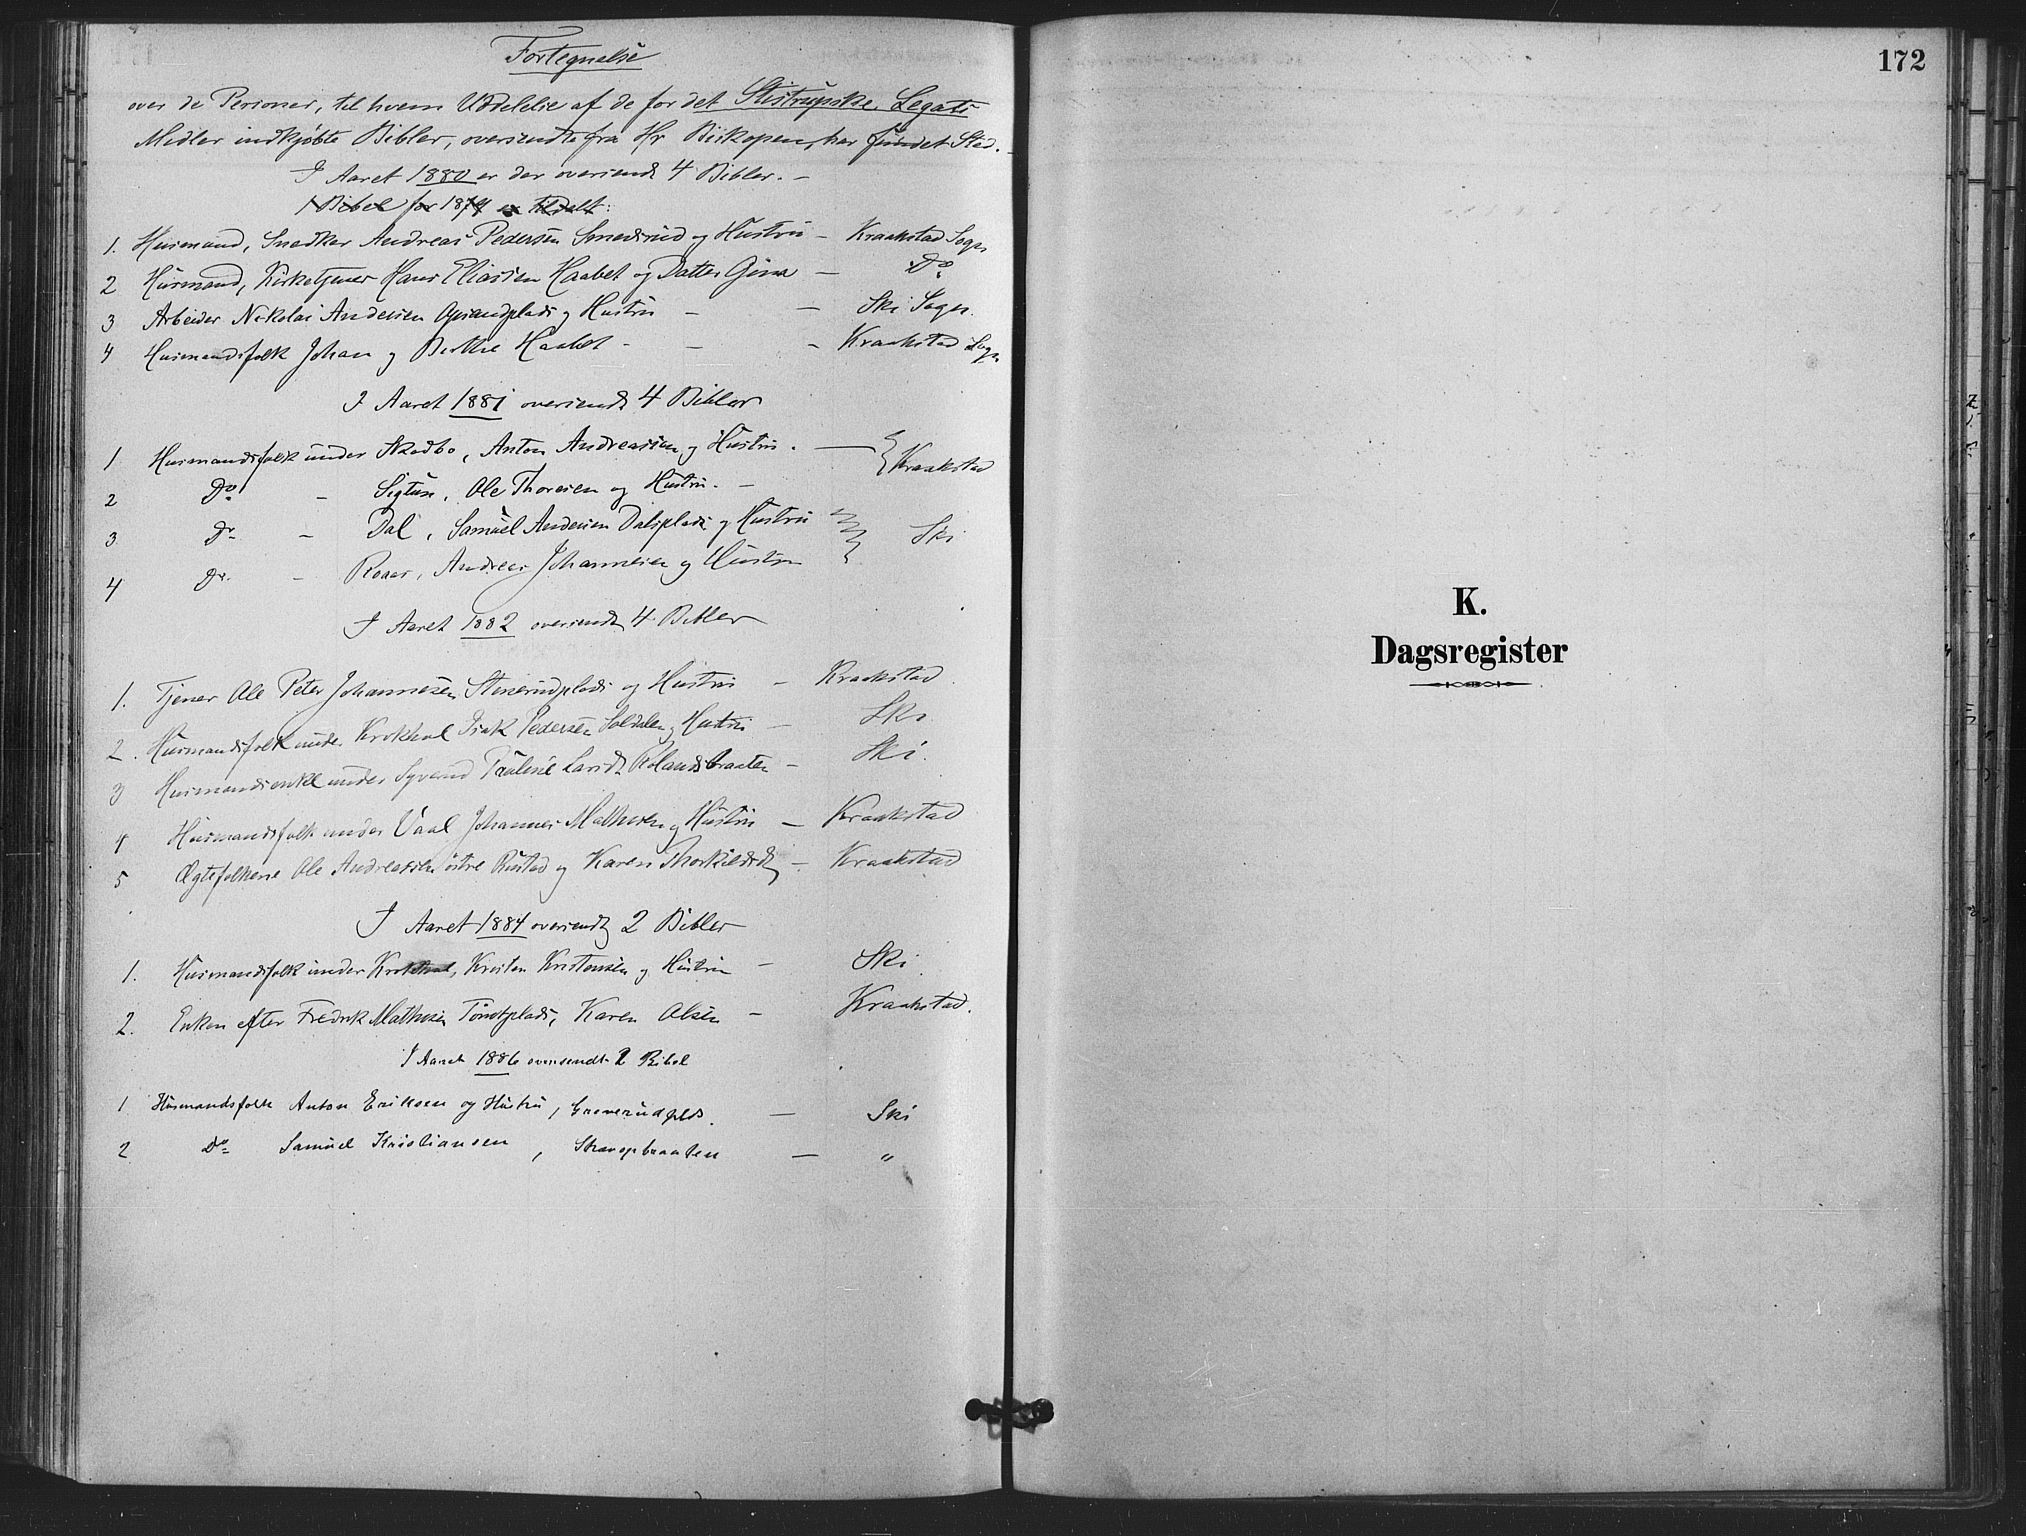 Fortegnelse
over de Personer, til hvem Uddelelse af de for det Stistrupske Legats
Midler indkjøbte Bibler, oversendte fra Hr Biskopen, har fundet Sted.
I Aaret 1880 er der oversendt 4 Bibler. –
1 Bibel for 1879 er tildelt:
1. Husmand, Snedker Andreas Pedersen Smedsrud og Hustru – Kraakstad Sogn
2 Husmand, Kirketjener Hans Eliassen Haabet og Datter Gina – Do
3 Arbeider Nikolai Andersen Opsandplads og Hustru – – Ski Sogn.
4 Husmandsfolk Johan og Berthe Haabet – – – Kraakstad Sogn
I Aaret 1881 oversendt 4 Bibler
1 Husmandsfolk under Skodbo, Anton Andreassen og Hustru. – Kraakstad
2 Do – Sigtun, Ole Thoresen og Hustru. –
3 Do – Dal, Samuel Andersen Dalsplads og Hustru Ski
4 Do. – Roaas, Andreas Johannesen og Hustru
I Aaret 1882 oversendt 4 Bibler
1. Tjener Ole Peter Johannesen Stenerudplads og Hustru – Kraakstad.
2. Husmandsfolk under Krokhol Isak Pedersen Soldalen og Hustru – Ski
3 Husmandsenke under Syverud Pauline Larsdt Rolandsbraaten – Ski.
4 Husmandsfolk under Vaal Johannes Mathisen og Hustru – Kraakstad
5 Ægtefolkene Ole Andreassen østre Rustad og Karen Thorkildsdt –. Kraakstad
I Aaret 1884 oversendt 2 Bibler
1. Husmandsfolk under Krokhol, Kristen Kristensen og Hustru – Ski
2. Enken efter Fredrik Mathisen Tomtplads, Karen Olsen – Kraakstad.
I Aaret 1886 oversendt 2 Bibel
1 Husmandsfolk Anton Eriksen og Hustru, Greverudplds. – Ski
2 Do Samuel Kristiansen, – "
172
K.
Dagsregister